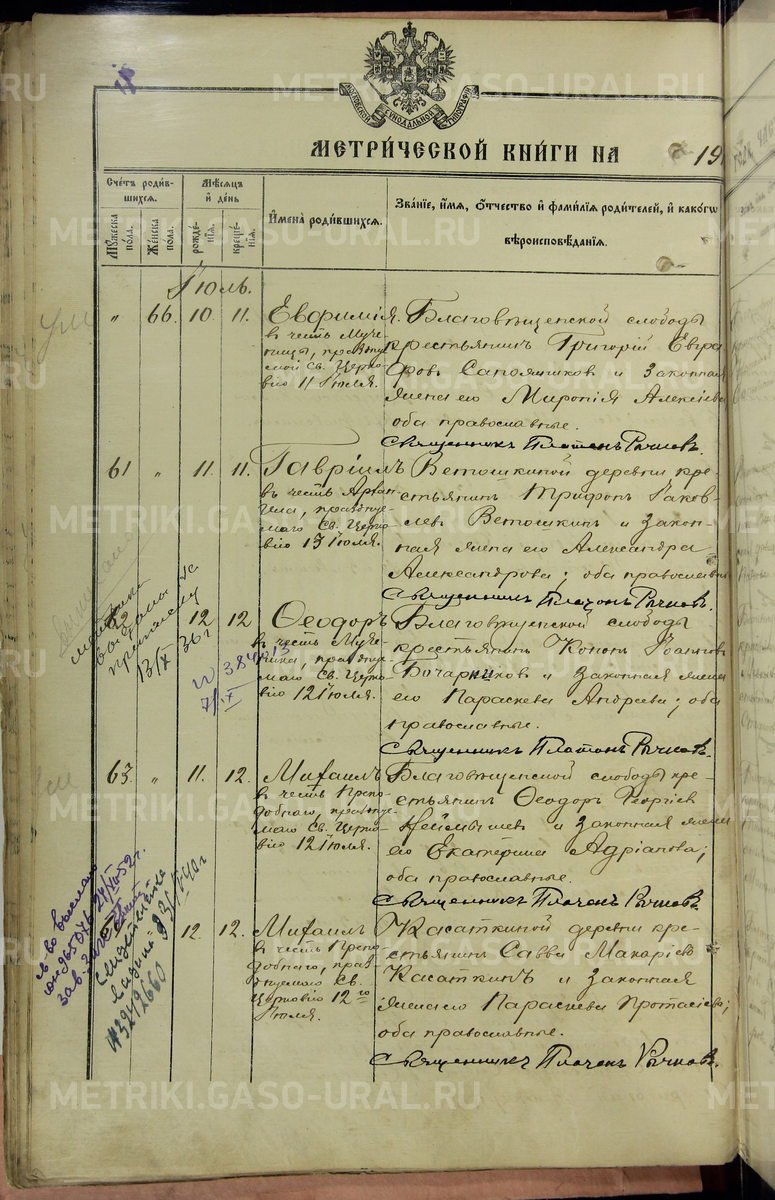 МОСКОВСКОЙ СѴНОДАЛЬНОЙ ТИПОГРАФІИ
МЕТРИ́ЧЕСКОЙ КНИ́ГИ НА 19
Сче́тъ роди́в-
шихся.
Му́жеска по́ла.
Же́нска по́ла.
Мѣ́сяцъ
и҆ де́нь
рожде́-
нїя.
креще́-
нїя.
И҆мена̀ роди́вшихся.
Зва́нїе, и҆́мя, ѻ҆́тчество и҆ фами́лїя роди́телей, и҆ како́гѡ
вѣроисповѣ́данїя.
Іюль.
" 66. 10 11. Евфимія.
въ честь Муче-
ницы, празднуе-
мой Св. Церко-
вію 11 Іюля.
Благовѣщенской слободы
крестьянинъ Григорій Евгра
фовъ Сапожниковъ и законная
жена его Миропія Алексіева
оба православные.
Священникъ Платонъ Рычковъ.
61 " 11. 11. Гавріилъ
въ честь Архан-
гела, праздную-
маго Св. Церко-
вію 13 Іюля.
Ветошкиной деревни кре-
стьянинъ Трифонъ Іаков-
левъ Ветошкинъ и закон-
ная жена его Александра
Александрова; оба православные
Священникъ Платонъ Рычковъ.
62 12 12 Ѳеодоръ
въ честь Муче-
ника, празднуе-
маго Св. Церко-
вію 12 Іюля.
Благовѣщенской слободы
крестьянинъ Кононъ Іоанновъ
Бочарниковъ и законная жена
его Параскева Андреева; оба
православные.
Священникъ Платонъ Рычковъ.
13/X 36 г
63. " 11. 12. Михаилъ
въ честь Препо-
добнаго, празднуе-
маго Св. Церко-
вію 12 Іюля.
Благовѣщенской слободы кре-
стьянинъ Ѳеодоръ Георгіевъ
и законная жена
его Екатерина Адріанова;
оба православные.
Священникъ Платонъ Рычковъ.
12. 12. Михаилъ
въ честь Препо-
добнаго, празд-
нуемаго Св.
Церковію 12го
Іюля.
Касаткиной деревни кре-
стьянинъ Савва Макаріевъ
Касаткинъ и законная
жена его Параскева Протасіева;
оба православные.
Священникъ Платонъ Рычковъ.
METRIKI.GASO-URAL.RU